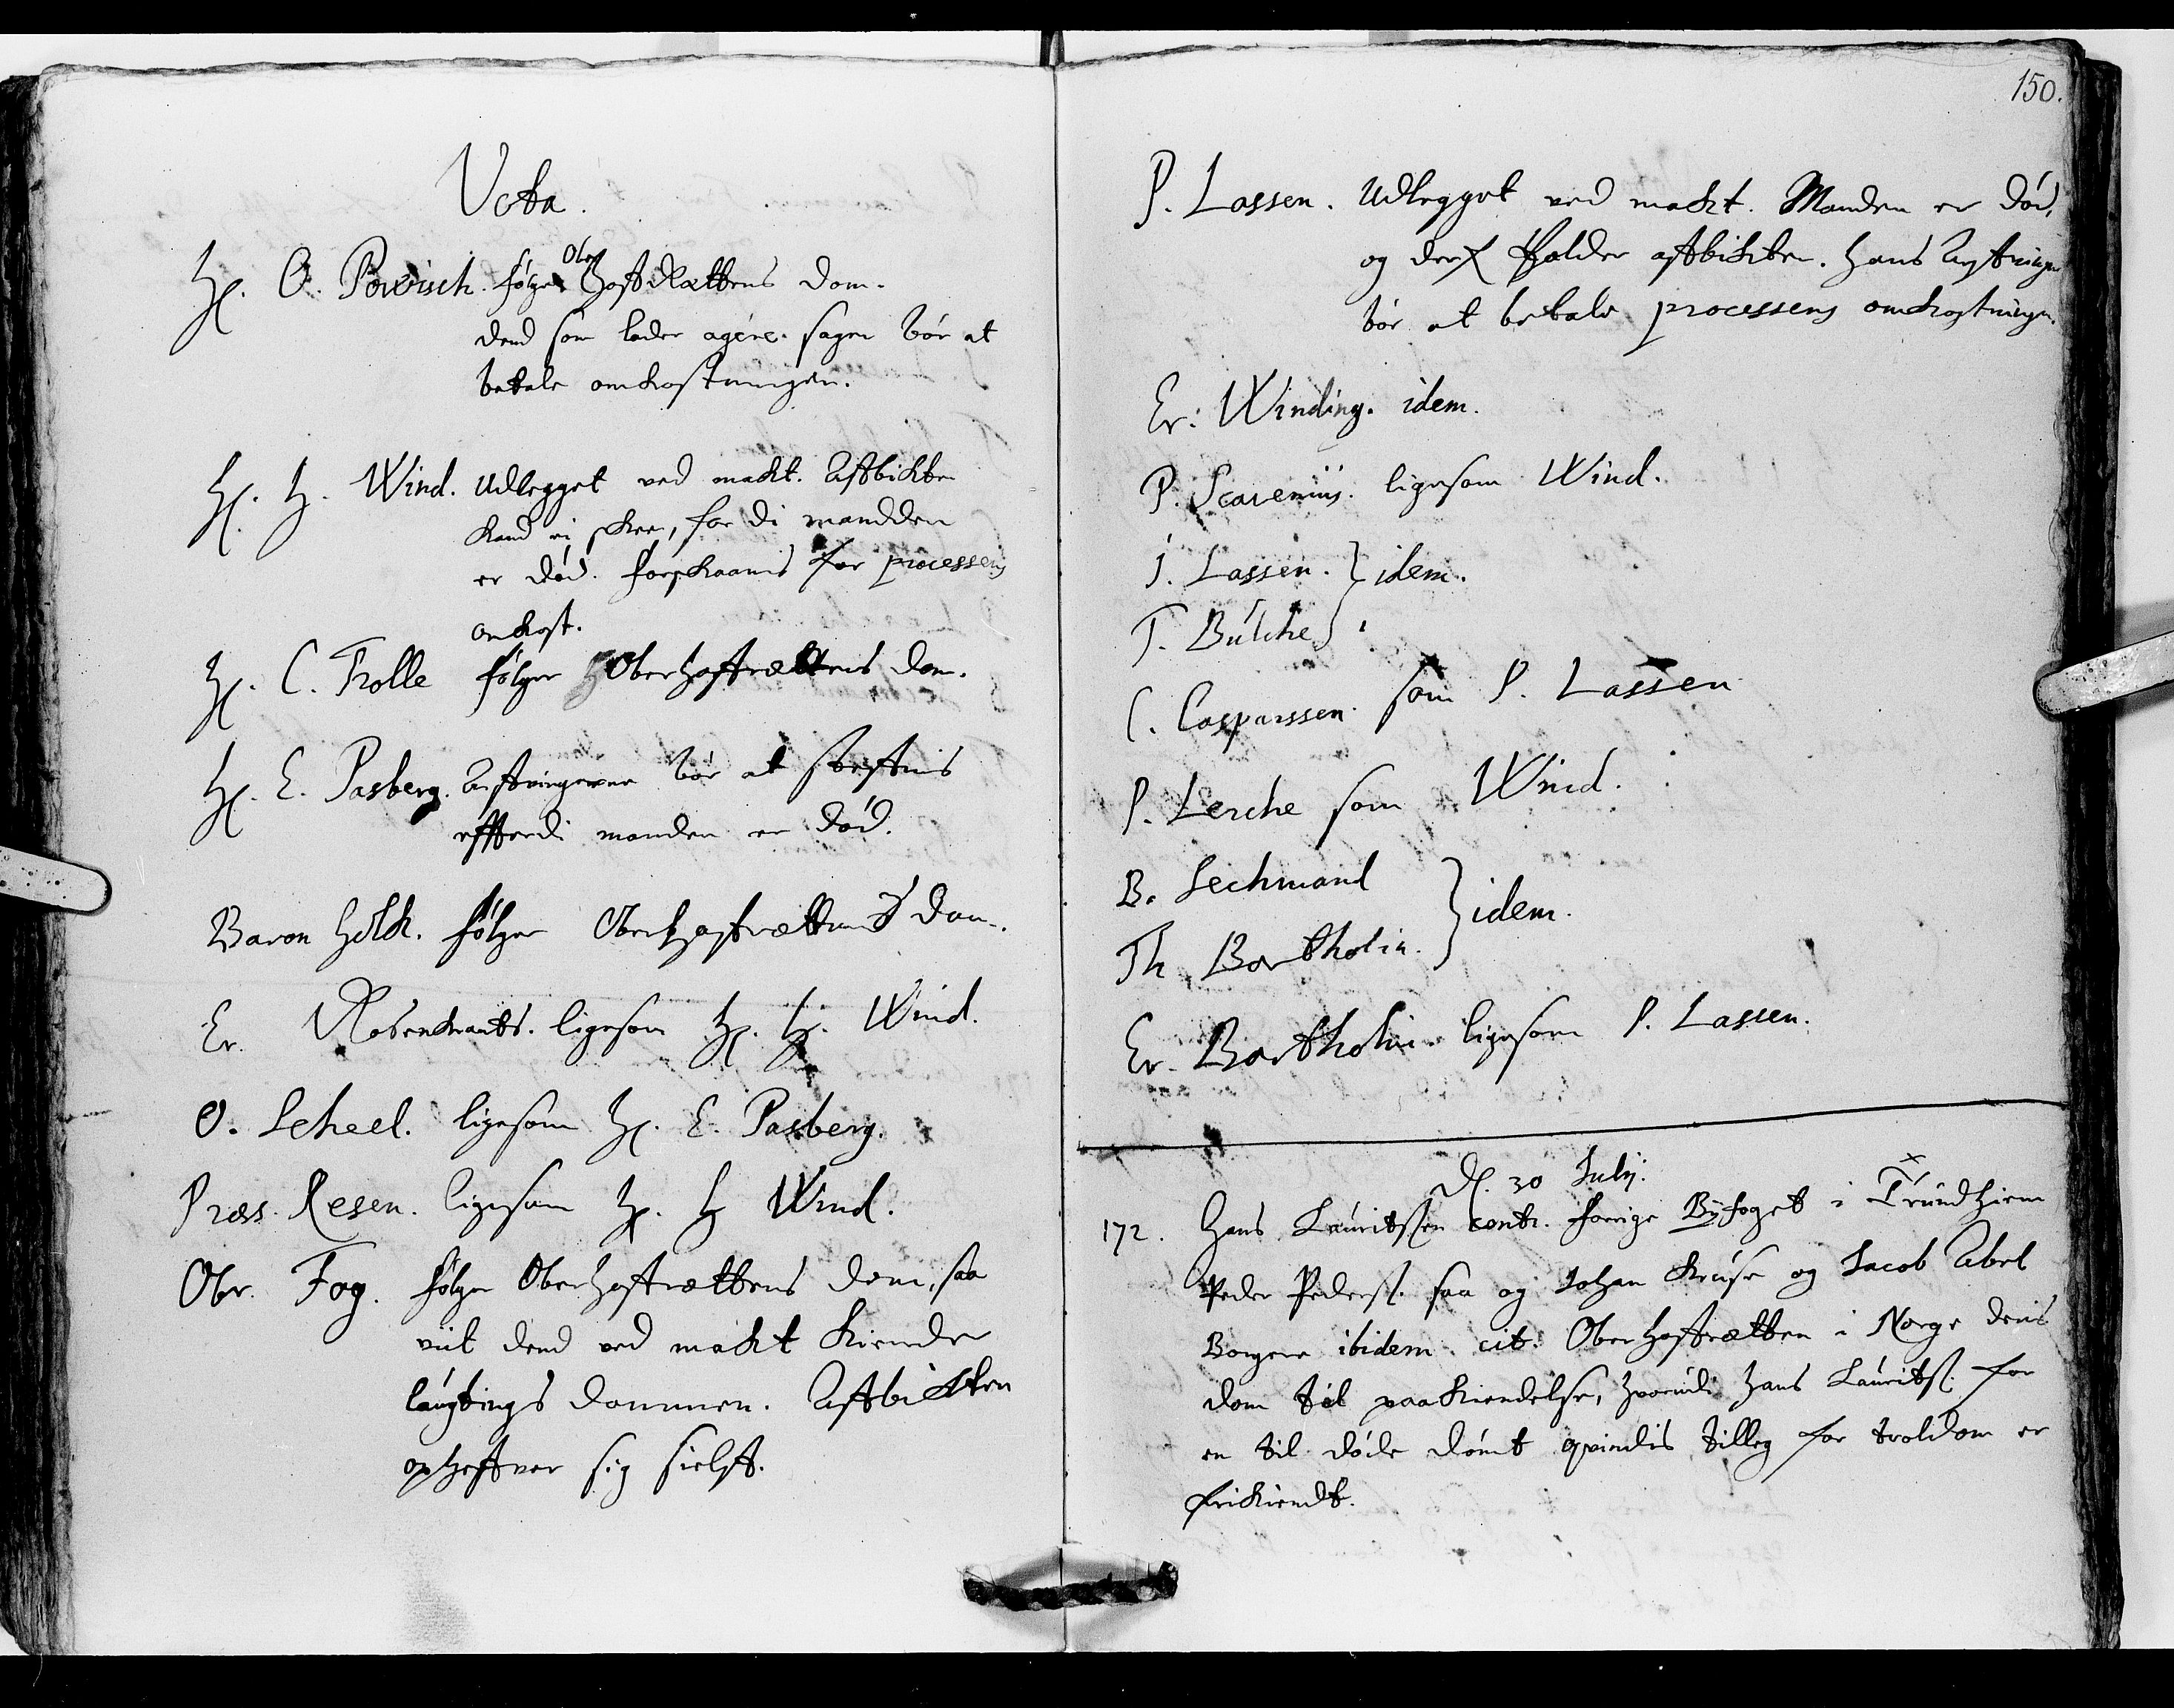 Vota.
H. O. Powisch. følger Ober Hoffrættens dom.
dend som lader agere sagen bør at
betale omkostningen.
H. H. Wind. Udlegget ved makt. Affbikten
kand ej skee, for di mandden
er død. forskaanis for processens
omkost.
H. C. Trolle følger Oberhoffrættens dom.
H. E. Pasberg. Arfvingerne bør at
effterdi manden er død.
Baron Holk. følger Oberhoffrættens dom.
Er. Rosenkrants. ligesom H. H. Wind.
O. Scheel. ligesom H. E. Pasberg.
Præs. Resen. ligesom H. H Wind.
Obr. Fog. følger Oberhoffrættens dom, saa
viit dend ved makt kiender
laugtings dommen. Affbikten
ophefver sig sielff.
150.
P. Lassen. Udlegget ved makt. Manden er død,
og der falder affbikten. Hans Arfvinger
bør at betale processens omkostninger.
Er: Winding. idem.
P. Scavenius. ligesom Wind.
J. Lassen. } idem.
T. Bülche }
C. Casparssen. som P. Lassen
P. Lerche som Wind.
B. Lechmand } idem.
Th Bartholin. }
Er. Bartholin. ligesom P. Lassen.
D. 30 July.
172. Hans Lauritssen contr. forrige Byfoget i Trundhiem
Peder Peders. saa og Johan Kruse og Jacob Abel
Borgere ibidem. cit. Oberhoffrætten i Norge deris
dom til paakiendelse, hvorudi Hans Laurits. for
en til døde dømt qvindis tilleg for troldom er
frikiendt.